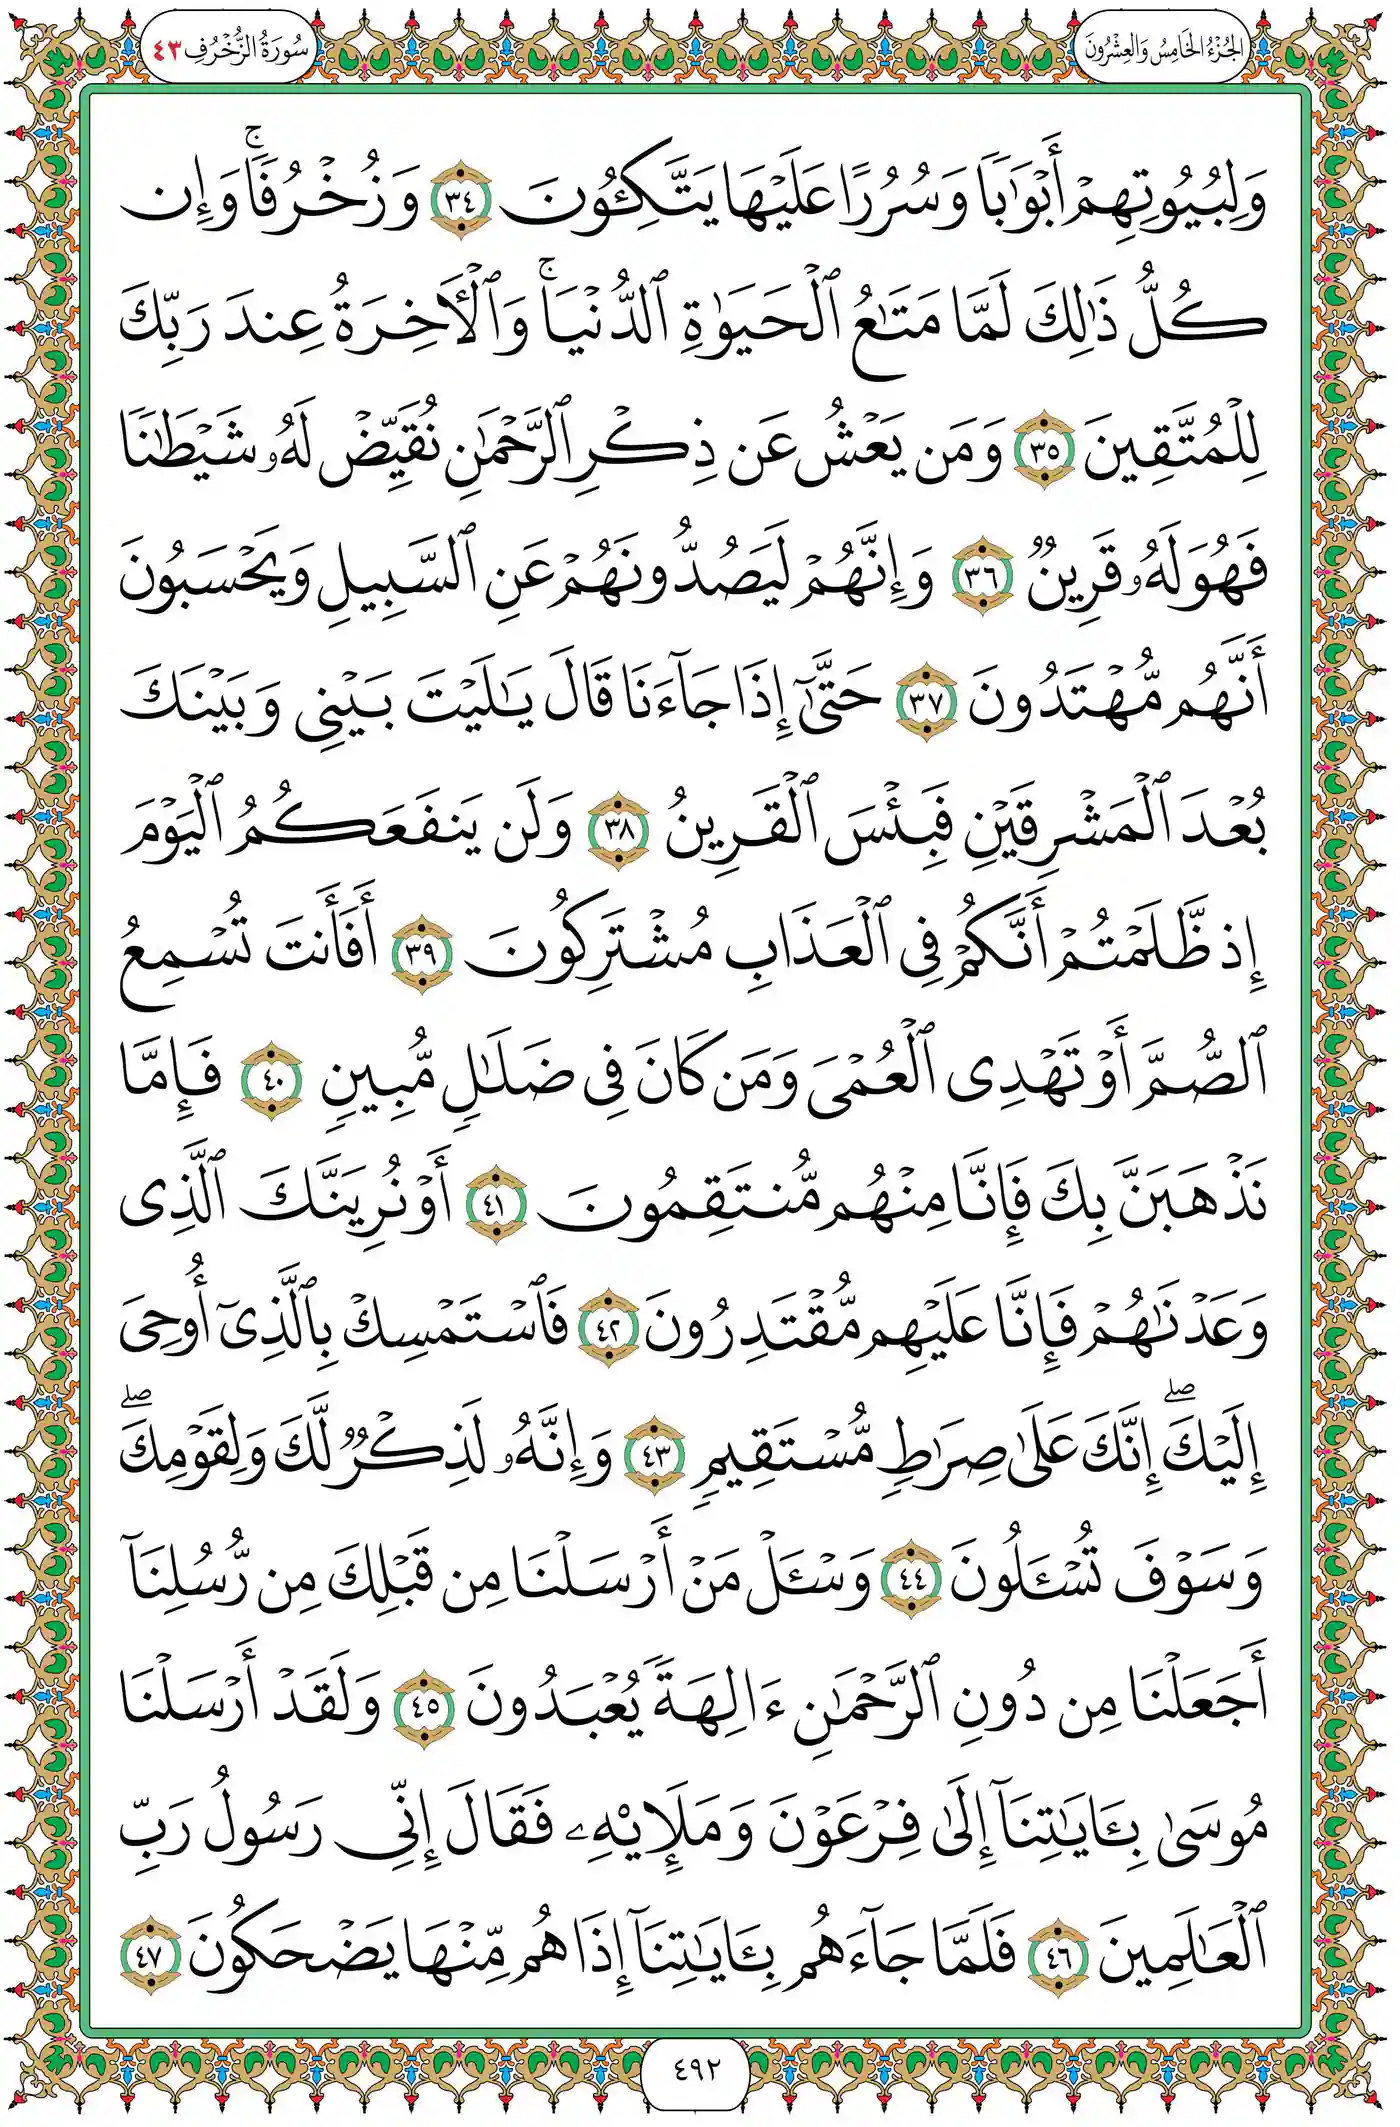 الجُزْءُ الخَامِسُ وَالعِشْرُونَ
سُورَةُ الزُّخْرُفِ ٤٣
وَلِبُيُوتِهِمْ أَبْوَٰبًا وَسُرُرًا عَلَيْهَا يَتَّكِـُٔونَ ٣٤ وَزُخْرُفًا ۚ وَإِن
كُلُّ ذَٰلِكَ لَمَّا مَتَـٰعُ ٱلْحَيَوٰةِ ٱلدُّنْيَا ۚ وَٱلْـَٔاخِرَةُ عِندَ رَبِّكَ
لِلْمُتَّقِينَ ٣٥ وَمَن يَعْشُ عَن ذِكْرِ ٱلرَّحْمَـٰنِ نُقَيِّضْ لَهُۥ شَيْطَـٰنًا
فَهُوَ لَهُۥ قَرِينٌ ٣٦ وَإِنَّهُمْ لَيَصُدُّونَهُمْ عَنِ ٱلسَّبِيلِ وَيَحْسَبُونَ
أَنَّهُم مُّهْتَدُونَ ٣٧ حَتَّىٰٓ إِذَا جَآءَنَا قَالَ يَـٰلَيْتَ بَيْنِى وَبَيْنَكَ
بُعْدَ ٱلْمَشْرِقَيْنِ فَبِئْسَ ٱلْقَرِينُ ٣٨ وَلَن يَنفَعَكُمُ ٱلْيَوْمَ
إِذ ظَّلَمْتُمْ أَنَّكُمْ فِى ٱلْعَذَابِ مُشْتَرِكُونَ ٣٩ أَفَأَنتَ تُسْمِعُ
ٱلصُّمَّ أَوْ تَهْدِى ٱلْعُمْىَ وَمَن كَانَ فِى ضَلَـٰلٍ مُّبِينٍ ٤٠ فَإِمَّا
نَذْهَبَنَّ بِكَ فَإِنَّا مِنْهُم مُّنتَقِمُونَ ٤١ أَوْ نُرِيَنَّكَ ٱلَّذِى
وَعَدْنَـٰهُمْ فَإِنَّا عَلَيْهِم مُّقْتَدِرُونَ ٤٢ فَٱسْتَمْسِكْ بِٱلَّذِىٓ أُوحِىَ
إِلَيْكَ ۖ إِنَّكَ عَلَىٰ صِرَٰطٍ مُّسْتَقِيمٍ ٤٣ وَإِنَّهُۥ لَذِكْرٌ لَّكَ وَلِقَوْمِكَ ۖ
وَسَوْفَ تُسْـَٔلُونَ ٤٤ وَسْـَٔلْ مَنْ أَرْسَلْنَا مِن قَبْلِكَ مِن رُّسُلِنَآ
أَجَعَلْنَا مِن دُونِ ٱلرَّحْمَـٰنِ ءَالِهَةً يُعْبَدُونَ ٤٥ وَلَقَدْ أَرْسَلْنَا
مُوسَىٰ بِـَٔايَـٰتِنَآ إِلَىٰ فِرْعَوْنَ وَمَلَإِي۟هِۦ فَقَالَ إِنِّى رَسُولُ رَبِّ
ٱلْعَـٰلَمِينَ ٤٦ فَلَمَّا جَآءَهُم بِـَٔايَـٰتِنَآ إِذَا هُم مِّنْهَا يَضْحَكُونَ ٤٧
٤٩٢